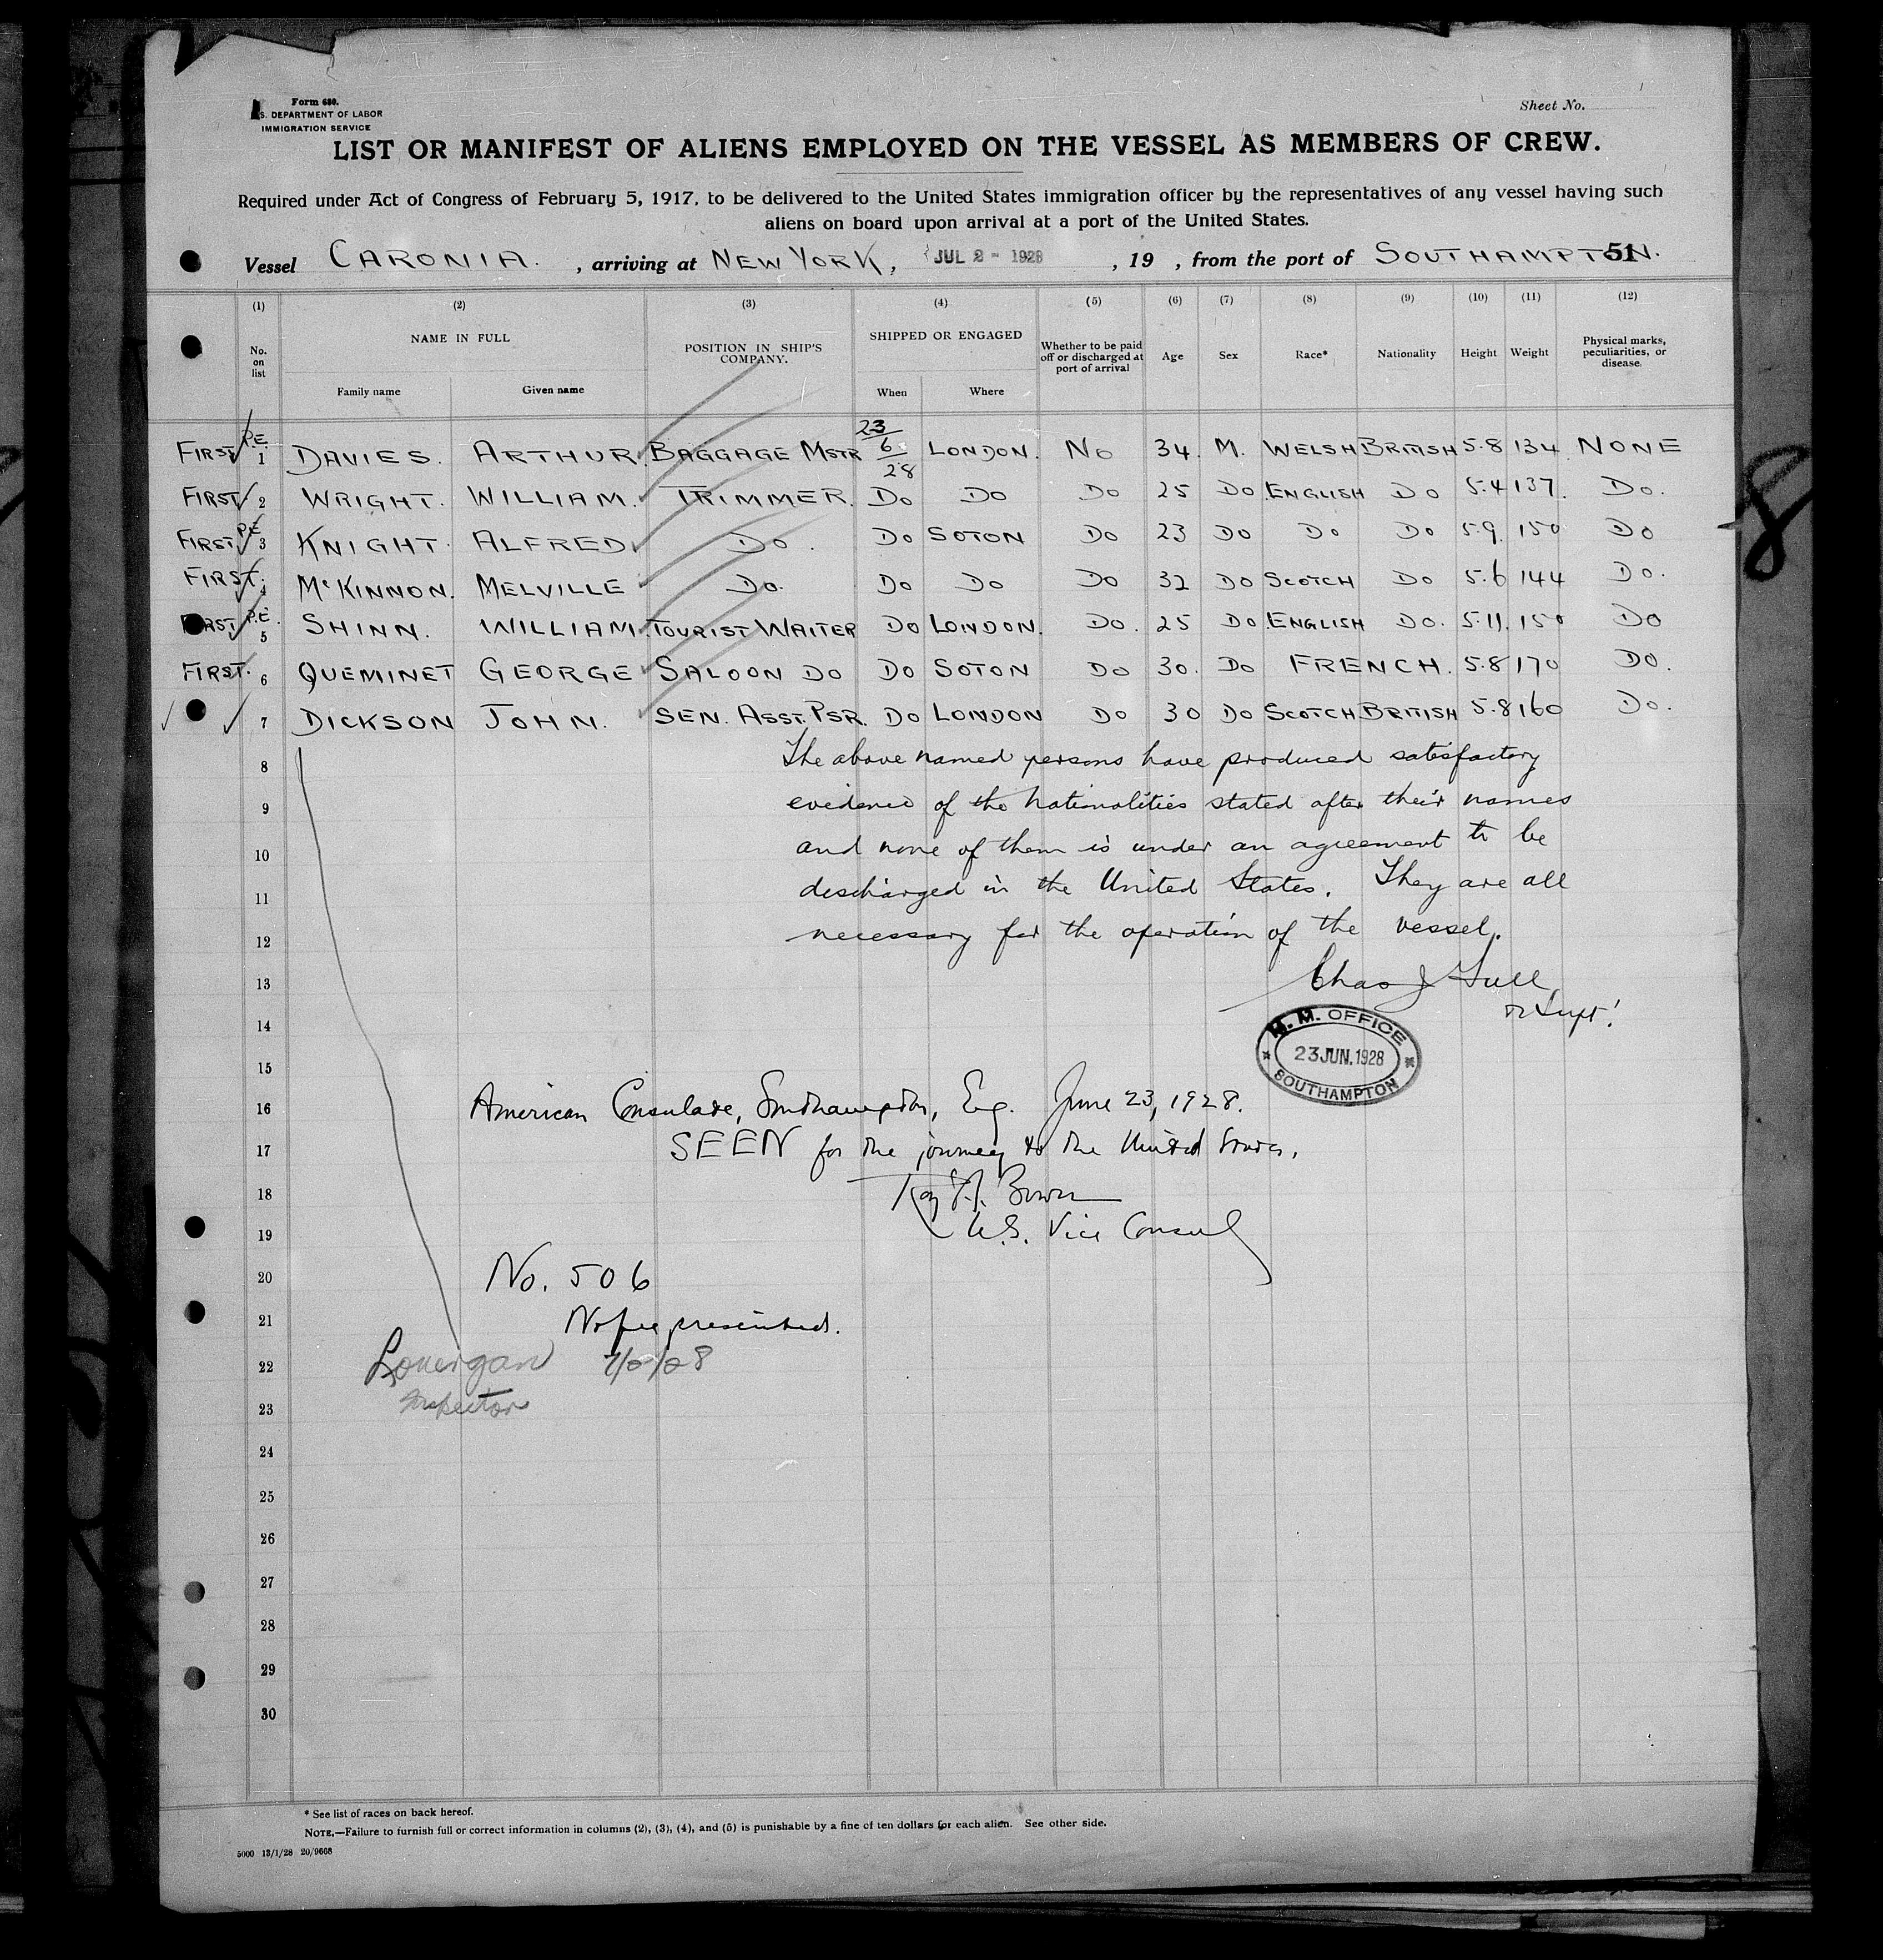 Form 680.
S. DEPARTMENT OF LABOR
IMMIGRATION SERVICE
Sheet No.
LIST OR MANIFEST OF ALIENS EMPLOYED ON THE VESSEL AS MEMBERS OF CREW.
Required under Act of Congress of February 5, 1917, to be delivered to the United States immigration officer by the representatives of any vessel having such
aliens on board upon arrival at a port of the United States.
Vessel CARONIA. , arriving at NEW YORK, JUL 2 - 1928 , 19 , from the port of SOUTHAMPTON. 51
(1) (2) (3) (4) (5) (6) (7) (8) (9) (10) (11) (12)
No. on list NAME IN FULL Family name Given name POSITION IN SHIP'S COMPANY. SHIPPED OR ENGAGED When Where Whether to be paid off or discharged at port of arrival Age Sex Race* Nationality Height Weight Physical marks, peculiarities, or disease
FIRST P.E. 1 DAVIES. ARTHUR. BAGGAGE MSTR 23/6/28 LONDON. NO 34. M. WELSH BRITISH 5.8 134 NONE
FIRST 2 WRIGHT. WILLIAM. TRIMMER. DO DO DO 25 DO ENGLISH DO 5.4 137. DO.
FIRST P.E. 3 KNIGHT. ALFRED DO. DO SOTON DO 23 DO DO DO 5.9. 150 DO
FIRST. 4 McKINNON. MELVILLE DO. DO DO DO 32 DO SCOTCH DO 5.6 144 DO.
FIRST P.E. 5 SHINN. WILLIAM. TOURIST WAITER DO LONDON. DO. 25 DO. ENGLISH DO. 5.11. 150 DO
FIRST. 6 QUEMINET GEORGE SALOON DO DO SOTON DO 30. DO FRENCH. 5.8 170 DO.
7 DICKSON JOHN. SEN. ASST. PSR. DO LONDON DO 30 DO SCOTCH BRITISH 5.8 160 DO.
8 The above named persons have produced satisfactory
9 evidence of the nationalities stated after their names
10 and none of them is under an agreement to be
11 discharged in the United States. They are all
12 necessary for the operation of the vessel.
13 Chas J
14 Supt.
M. M. OFFICE
23 JUN. 1928
SOUTHAMPTON
15
16 American Consulate, Southampton, Eng. June 23, 1928.
17 SEEN for the journey to the United States.
18 Bower
19 U.S. Vice Consul
20 No. 506
21 No fee prescribed.
22 Lonergan 7/2/28
23 Inspector
24
25
26
27
28
29
30
* See list of races on back hereof.
NOTE.—Failure to furnish full or correct information in columns (2), (3), (4), and (5) is punishable by a fine of ten dollars for each alien. See other side.
5000 13/1/28 20/9668
8